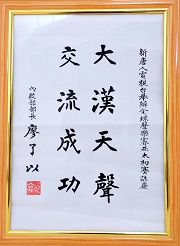 新唐人電視台舉辦全球聲樂賽亞太初賽誌慶
大漢天聲
交流成功
內政部部長
廖了以